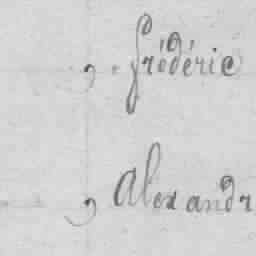 , Frédéric
, Alexandr